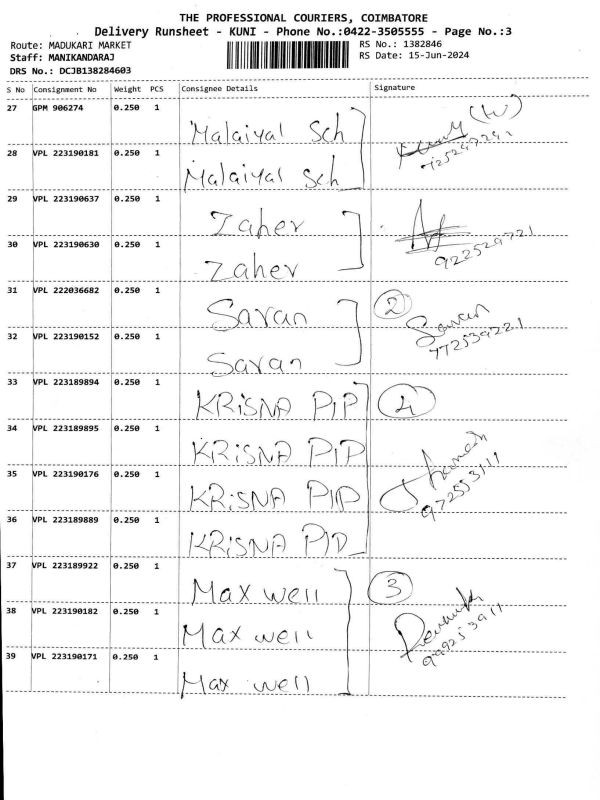 THE PROFESSIONAL COURIERS, COIMBATORE
Delivery Runsheet - KUNI - Phone No.:0422-3505555 - Page No.:3
Route: MADUKARI MARKET RS No.: 1382846
Staff: MANIKANDARAJ RS Date: 15-Jun-2024
DRS No.: DCJB138284603
S No Consignment No Weight PCS Consignee Details Signature
27 GPM 906274 0.250 1 Malaiyal Sch
28 VPL 223190181 0.250 1 Malaiyal Sch
29 VPL 223190637 0.250 1 Zaher
30 VPL 223190630 0.250 1 Zaher
922529721
31 VPL 222036682 0.250 1 Savan 2
Savan
32 VPL 223190152 0.250 1 Savan
7725392221
33 VPL 223189894 0.250 1 KRISNA PIP 4
34 VPL 223189895 0.250 1 KRISNA PIP
35 VPL 223190176 0.250 1 KRISNA PIP
972553111
36 VPL 223189889 0.250 1 KRISNA PIP
37 VPL 223189922 0.250 1 Max well 3
38 VPL 223190182 0.250 1 Max well
999253911
39 VPL 223190171 0.250 1 Max well